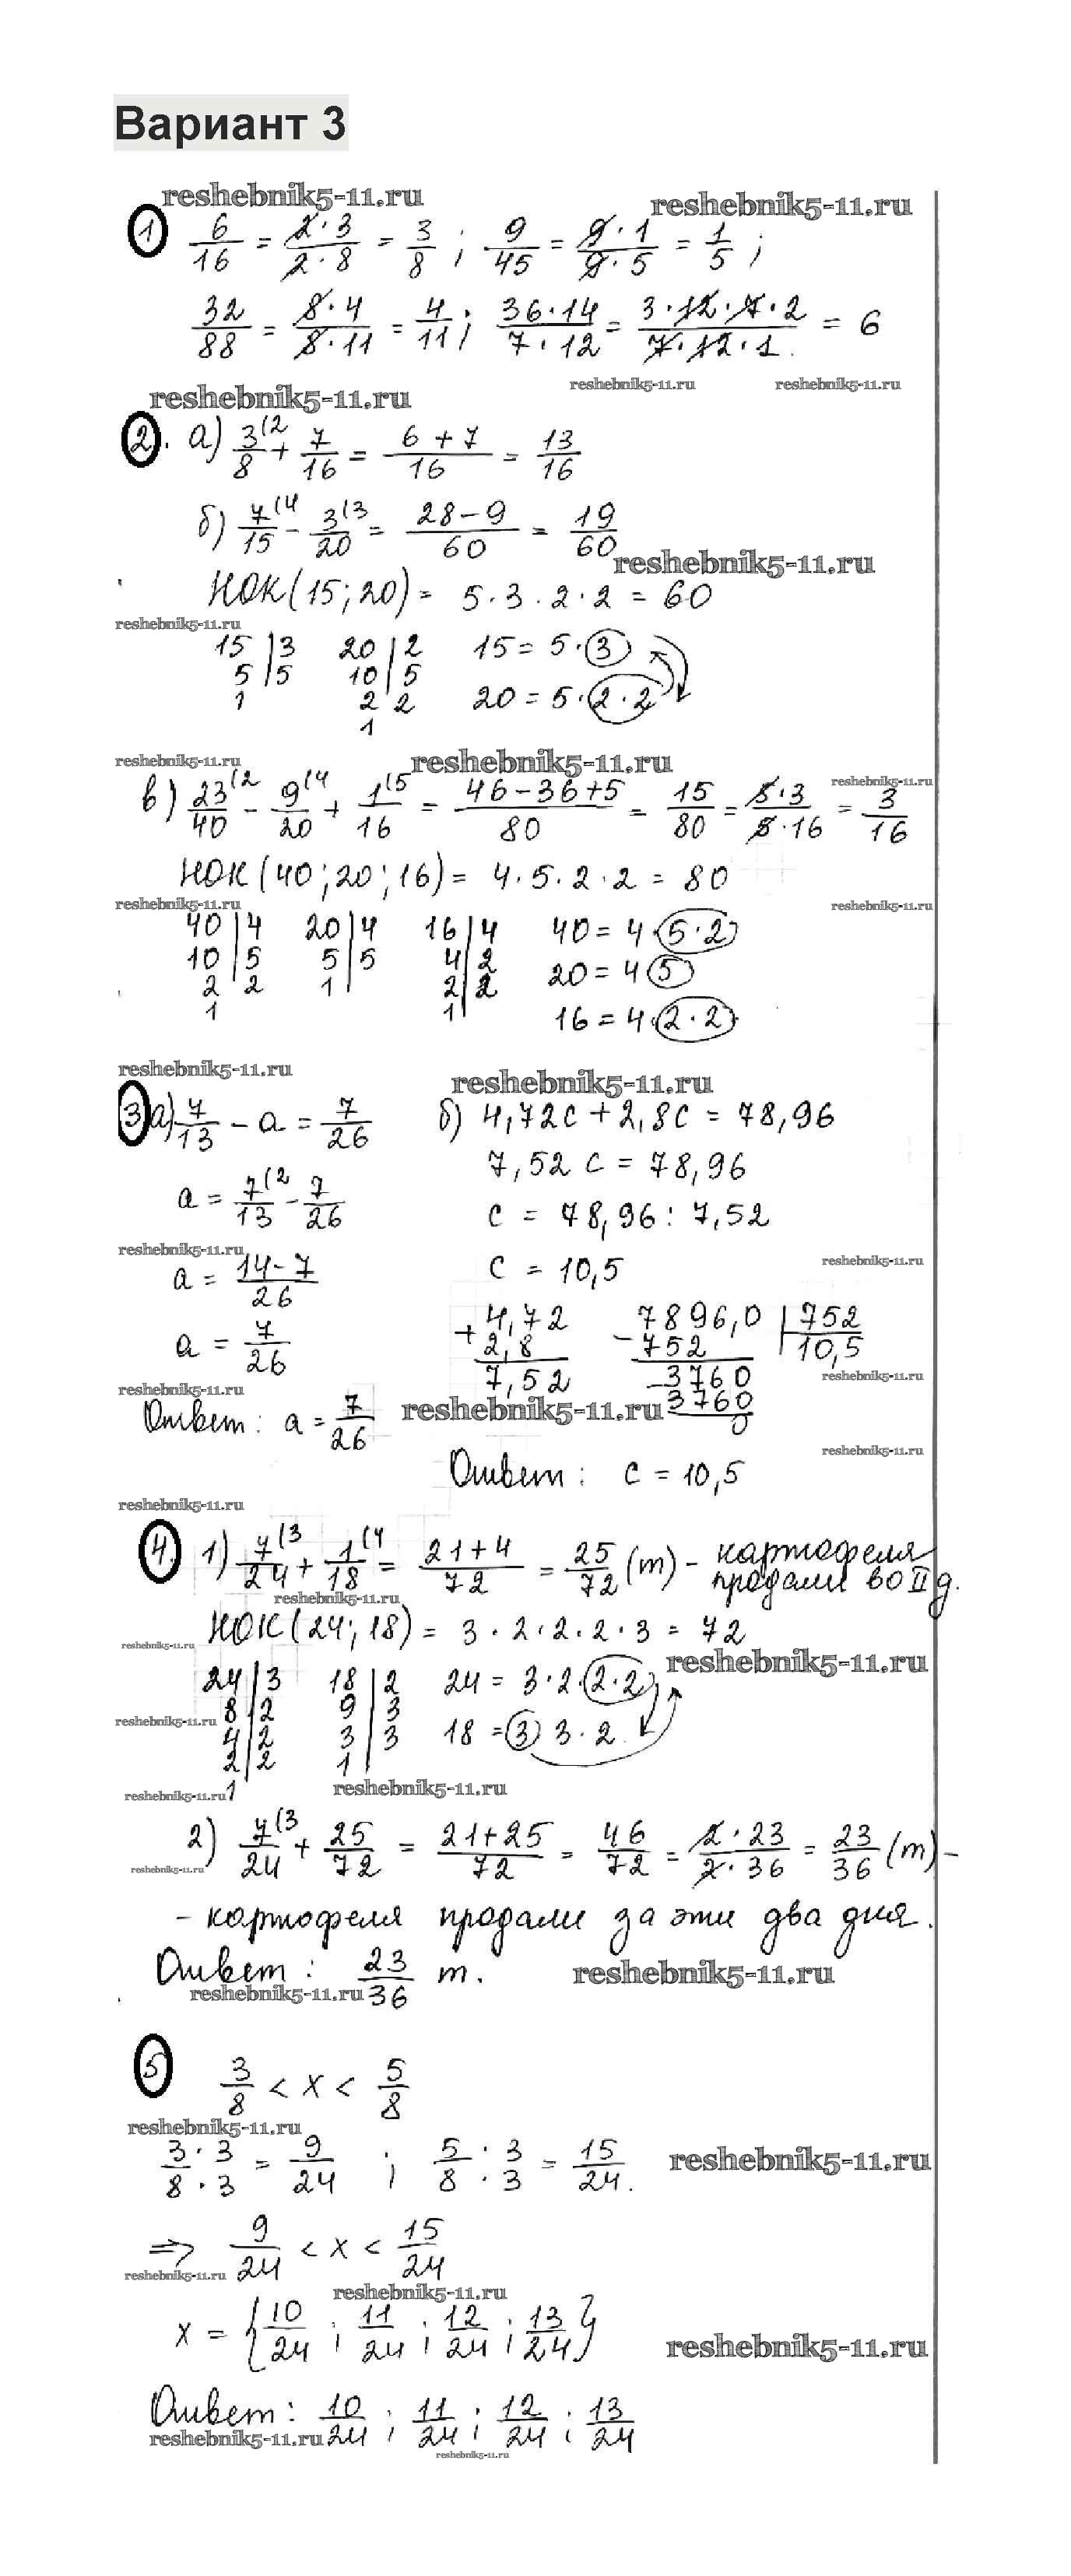 Вариант 3
reshebnik5-11.ru reshebnik5-11.ru
1 6/16 = 2·3/2·8 = 3/8 ; 9/45 = 9·1/9·5 = 1/5 ;
32/88 = 8·4/8·11 = 4/11 ; 36·14/7·12 = 3·12·7·2/7·12·1 = 6
reshebnik5-11.ru reshebnik5-11.ru
reshebnik5-11.ru
2. а) 3/8 (2 + 7/16 = 6+7/16 = 13/16
б) 7/15 (4 - 3/20 (3 = 28-9/60 = 19/60
reshebnik5-11.ru
НОК(15;20) = 5·3·2·2 = 60
reshebnik5-11.ru
15|3 20|2 15 = 5·3
5|5 10|5 20 = 5·2·2
1 2 2
1
reshebnik5-11.ru reshebnik5-11.ru
в) 23/40 (2 - 9/20 (4 + 1/16 (5 = 46-36+5/80 = 15/80 = 5·3/5·16 = 3/16
reshebnik5-11.ru
НОК(40;20;16) = 4·5·2·2 = 80
reshebnik5-11.ru reshebnik5-11.ru
40|4 20|4 16|4 40 = 4·5·2
10|5 5|5 4|2 20 = 4 5
2 2 1 2|2 16 = 4·2·2
1 1
reshebnik5-11.ru reshebnik5-11.ru
3 а) 7/13 - a = 7/26 б) 4,72c + 2,8c = 78,96
7,52c = 78,96
a = 7/13 (2 - 7/26 c = 78,96 : 7,52
reshebnik5-11.ru reshebnik5-11.ru
a = 14-7/26 c = 10,5
a = 7/26 +4,72 7896,0|752
2,8 -752 10,5
7,52 -3760
reshebnik5-11.ru reshebnik5-11.ru
3760
Ответ: a = 7/26 reshebnik5-11.ru 0
reshebnik5-11.ru
Ответ: c = 10,5
reshebnik5-11.ru
4 1) 7/24 (3 + 1/18 (4 = 21+4/72 = 25/72 (т) - картофеля
продали во II д.
reshebnik5-11.ru
НОК(24;18) = 3·2·2·2·3 = 72
reshebnik5-11.ru reshebnik5-11.ru
24|3 18|2 24 = 3·2·2·2
8|2 9|3
reshebnik5-11.ru
4|2 3|3 18 = 3 3·2
2|2 1
1
reshebnik5-11.ru reshebnik5-11.ru
2) 7/24 (3 + 25/72 = 21+25/72 = 46/72 = 2·23/2·36 = 23/36 (т) -
reshebnik5-11.ru
- картофеля продали за эти два дня.
Ответ: 23/36 т. reshebnik5-11.ru
reshebnik5-11.ru
5 3/8 < x < 5/8
reshebnik5-11.ru
3·3/8·3 = 9/24 ; 5/8 · 3/3 = 15/24. reshebnik5-11.ru
=> 9/24 < x < 15/24
reshebnik5-11.ru reshebnik5-11.ru
x = {10/24 ; 11/24 ; 12/24 ; 13/24} reshebnik5-11.ru
Ответ: 10/24 ; 11/24 ; 12/24 ; 13/24
reshebnik5-11.ru
reshebnik5-11.ru